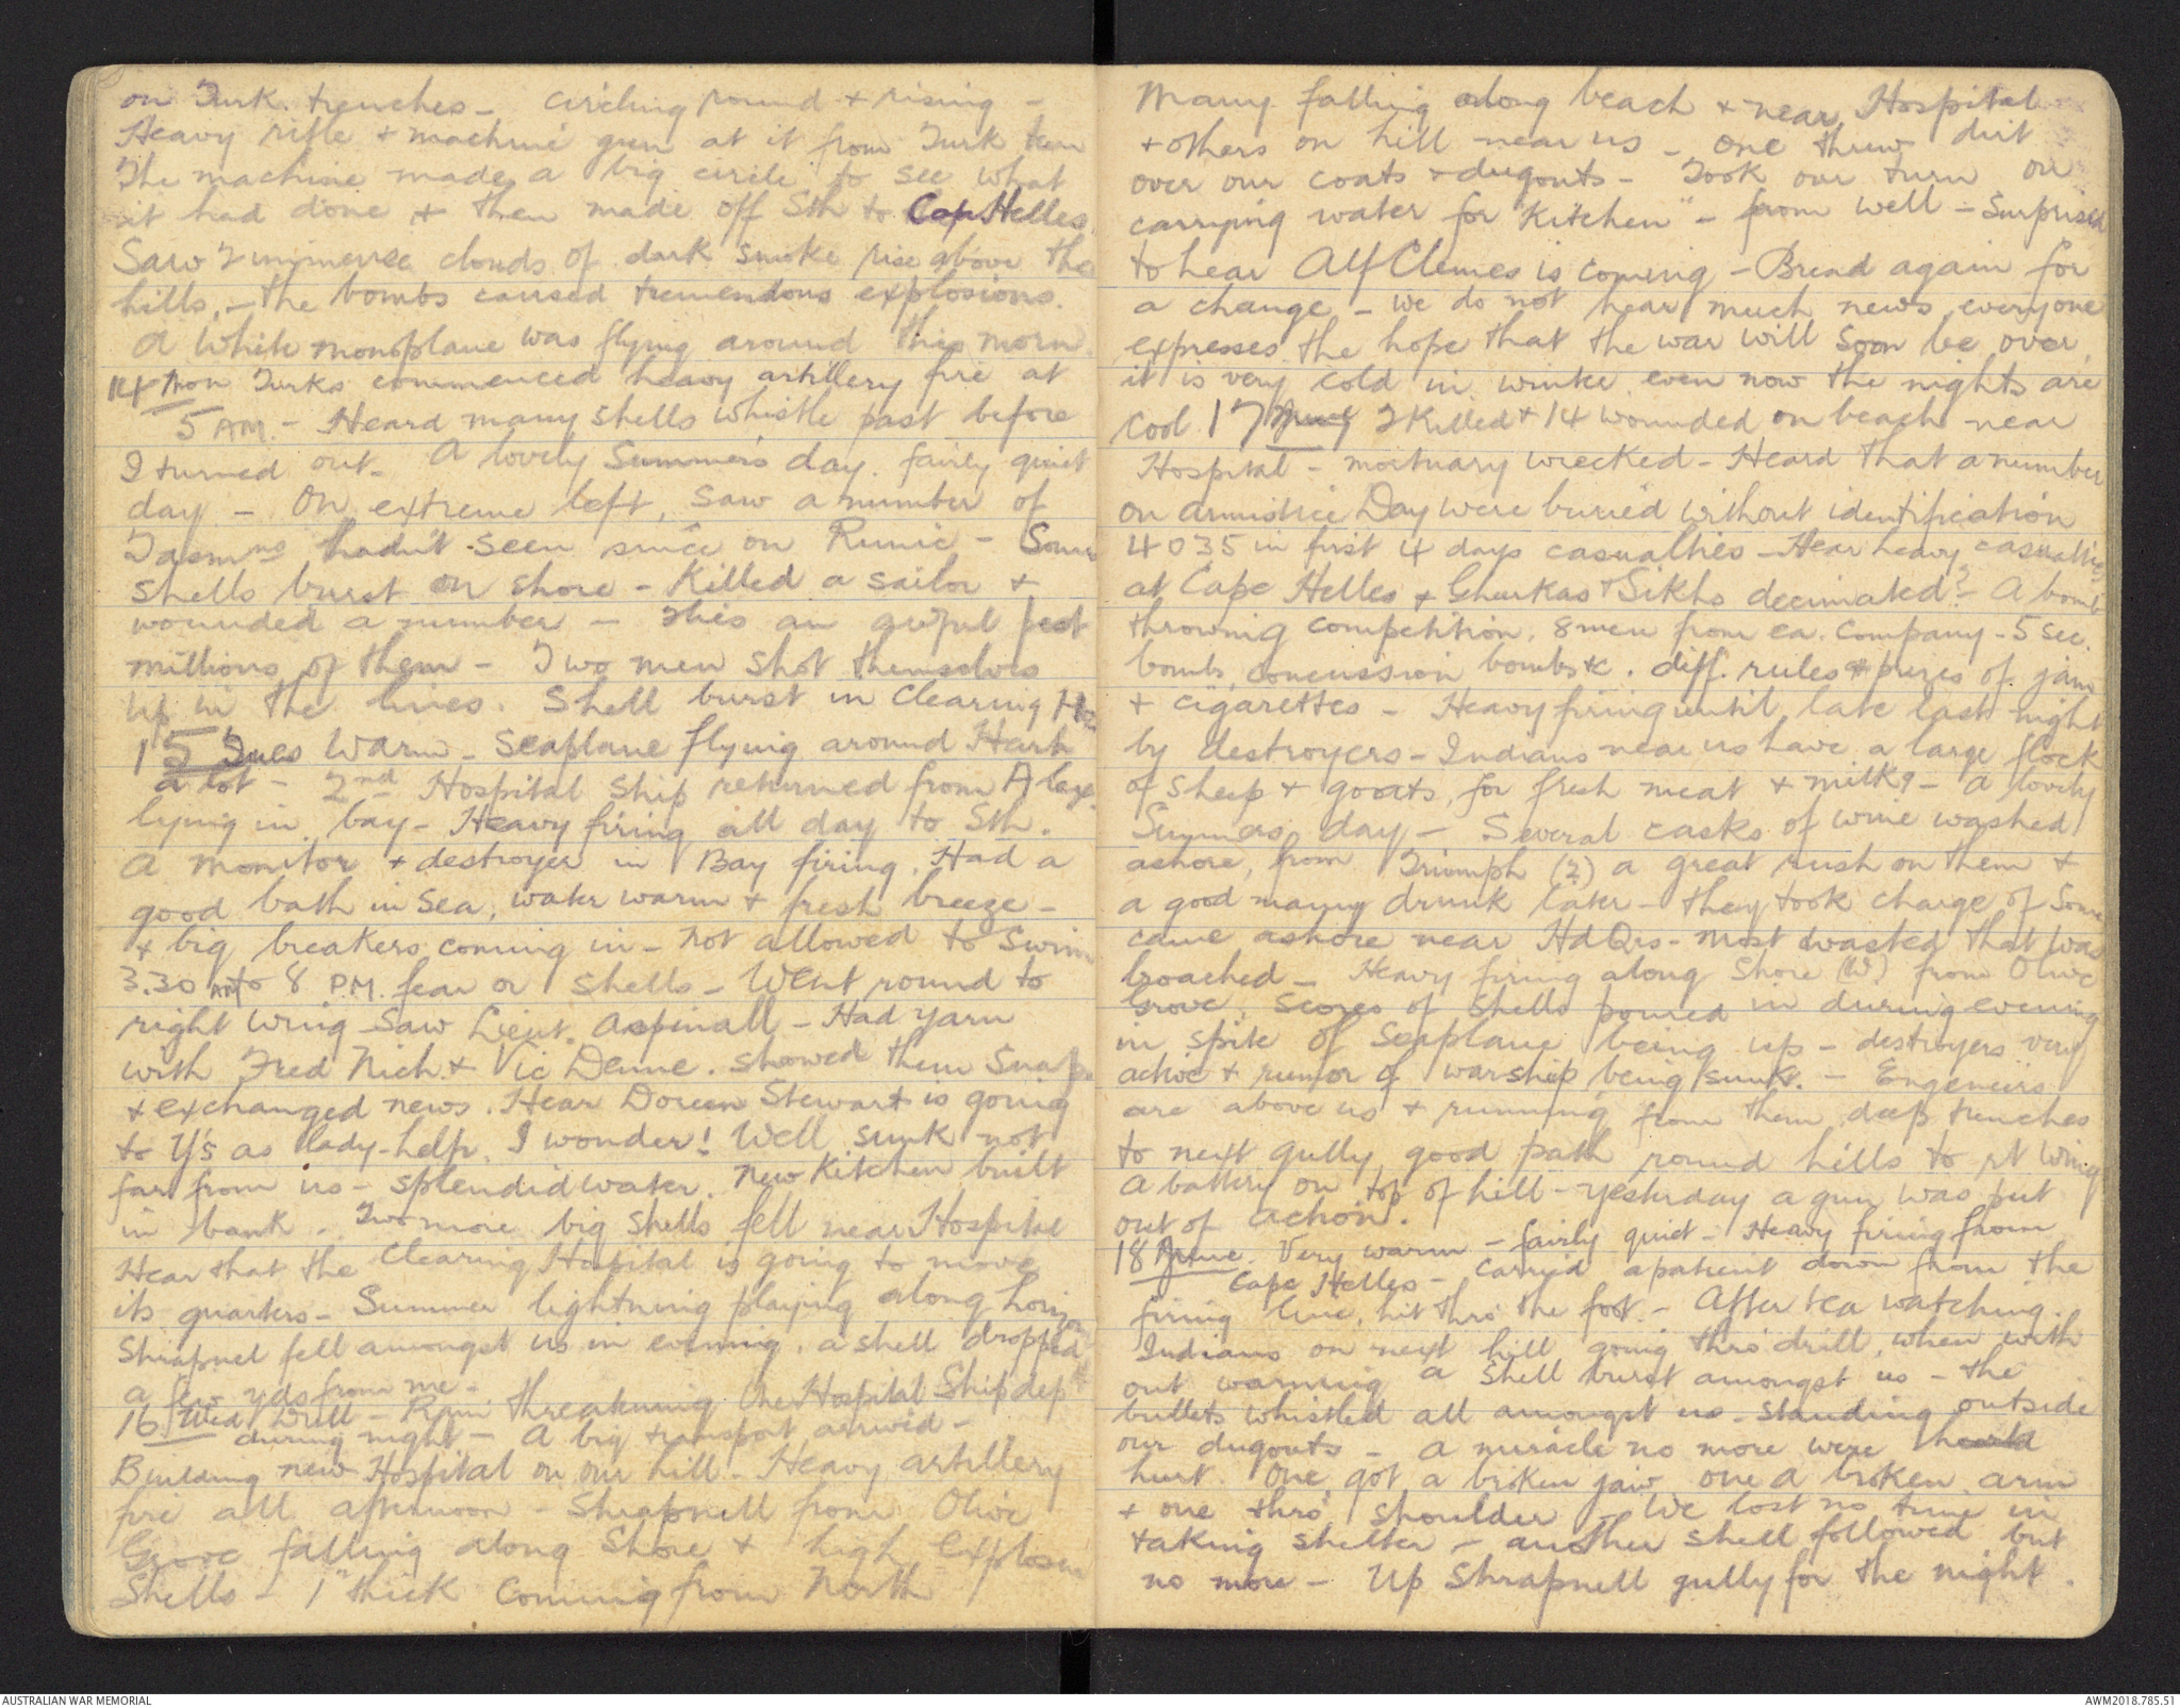 on Turk. trenches - circling round + rising -
Heavy rifle + machine gun at it from Turk
The machine made a big circle to see what
it had done + then made off Sth to Cap Helles
Saw 2 immense clouds of dark smoke rise above the
hills, - the bombs caused tremendous explosions.
A white monoplane was flying around this morn
14 Mon Turks commenced heavy artillery fire at
5 AM. - Heard many shells whistle past before
I turned out. A lovely Summers day. fairly quiet
day - On extreme left, saw a number of
Tasmns hadn't seen since on Runic - Some
shells burst on shore - Killed a sailor +
wounded a number - flies an awful pest
millions of them - Two men shot themselves
up in the lines. Shell burst in Clearing Ho
15 Tues Warm - Seaplane flying around Harb
a lot - 2nd Hospital Ship returned from Alex
lying in bay - Heavy firing all day to Sth.
A monitor + destroyer in Bay firing. Had a
good bath in Sea, water warm + fresh breeze -
+ big breakers coming in - not allowed to Swim
3.30 AM to 8 P.M. fear of shells - Went round to
right wing Saw Lieut. Aspinall - Had yarn
with Fred Nich + Vic Denne. showed them Snap
+ exchanged news. Hear Doreen Stewart is going
to Y's as lady-help. I wonder! Well sunk not
far from us - splendid water. New Kitchen built
in bank - Two more big shells fell near Hospital
Hear that the Clearing Hospital is going to move
its quarters - Summer lightning playing along horizon
Shrapnel fell amongst us in evening, a shell dropped
a few yds from me -
16 Wed Drill - Rain threatening One Hospital Ship dep
during night - A big transport arrived -
Building new Hospital on our hill - Heavy artillery
fire all afternoon - Shrapnell from Olive
Grove falling along Shore + high explosive
Shells - 1" thick coming from North
Many falling along beach + near Hospital
+ others on hill near us - One threw dirt
over our coats + dugouts - Took our turn on
carrying water for "Kitchen" - from well - Surprised
to hear Alf Clemes is coming - Bread again for
a change - we do not hear much news, everyone
expresses the hope that the war will soon be over,
it is very cold in winter even now the nights are
cool. 17 June 2 Killed + 14 wounded on beach near
Hospital - mortuary wrecked - Heard that a number
on armistice Day were buried without identification
4035 in first 4 days casualties - Hear heavy casualties
at Cape Helles + Ghurkas + Sikhs decimated? - A bomb
throwing competition, 8 men from ea. Company - 5 sec.
bombs, concussion bombs &c. diff. rules & prizes of jam
+ cigarettes - Heavy firing until late last night
by destroyers - Indians near us have a large flock
of sheep + goats, for fresh meat + milk? - A lovely
Summers day - Several casks of wine washed
ashore, from Triumph (?) a great rush on them +
a good many drunk later - they took charge of Some
came ashore near Hd Qrs - most wasted that was
boached - Heavy firing along Shore (W) from Olive
Grove, Scores of shells poured in during evening
in spite of Seaplane being up - destroyers very
active + rumor of warship being sunk. - Engeneirs
are above us + running from them deep trenches
to next gully, good path round hills to rt wing
A battery on top of hill - yesterday a gun was put
out of action.
18 June. Very warm - fairly quiet - Heavy firing from
Cape Helles - Carried a patient down from the
firing line, hit thro' the foot - After tea watching
Indians on next hill going thro' drill, when with
out warning a shell burst amongst us - the
bullets whistled all amongst us - standing outside
our dugouts - a miracle no more were
hurt. One got a broken jaw, one a broken arm
+ one thro' shoulder - We lost no time in
taking shelter - another shell followed but
no more - Up Shrapnell gully for the night.
AUSTRALIAN WAR MEMORIAL
AWM2018.785.51